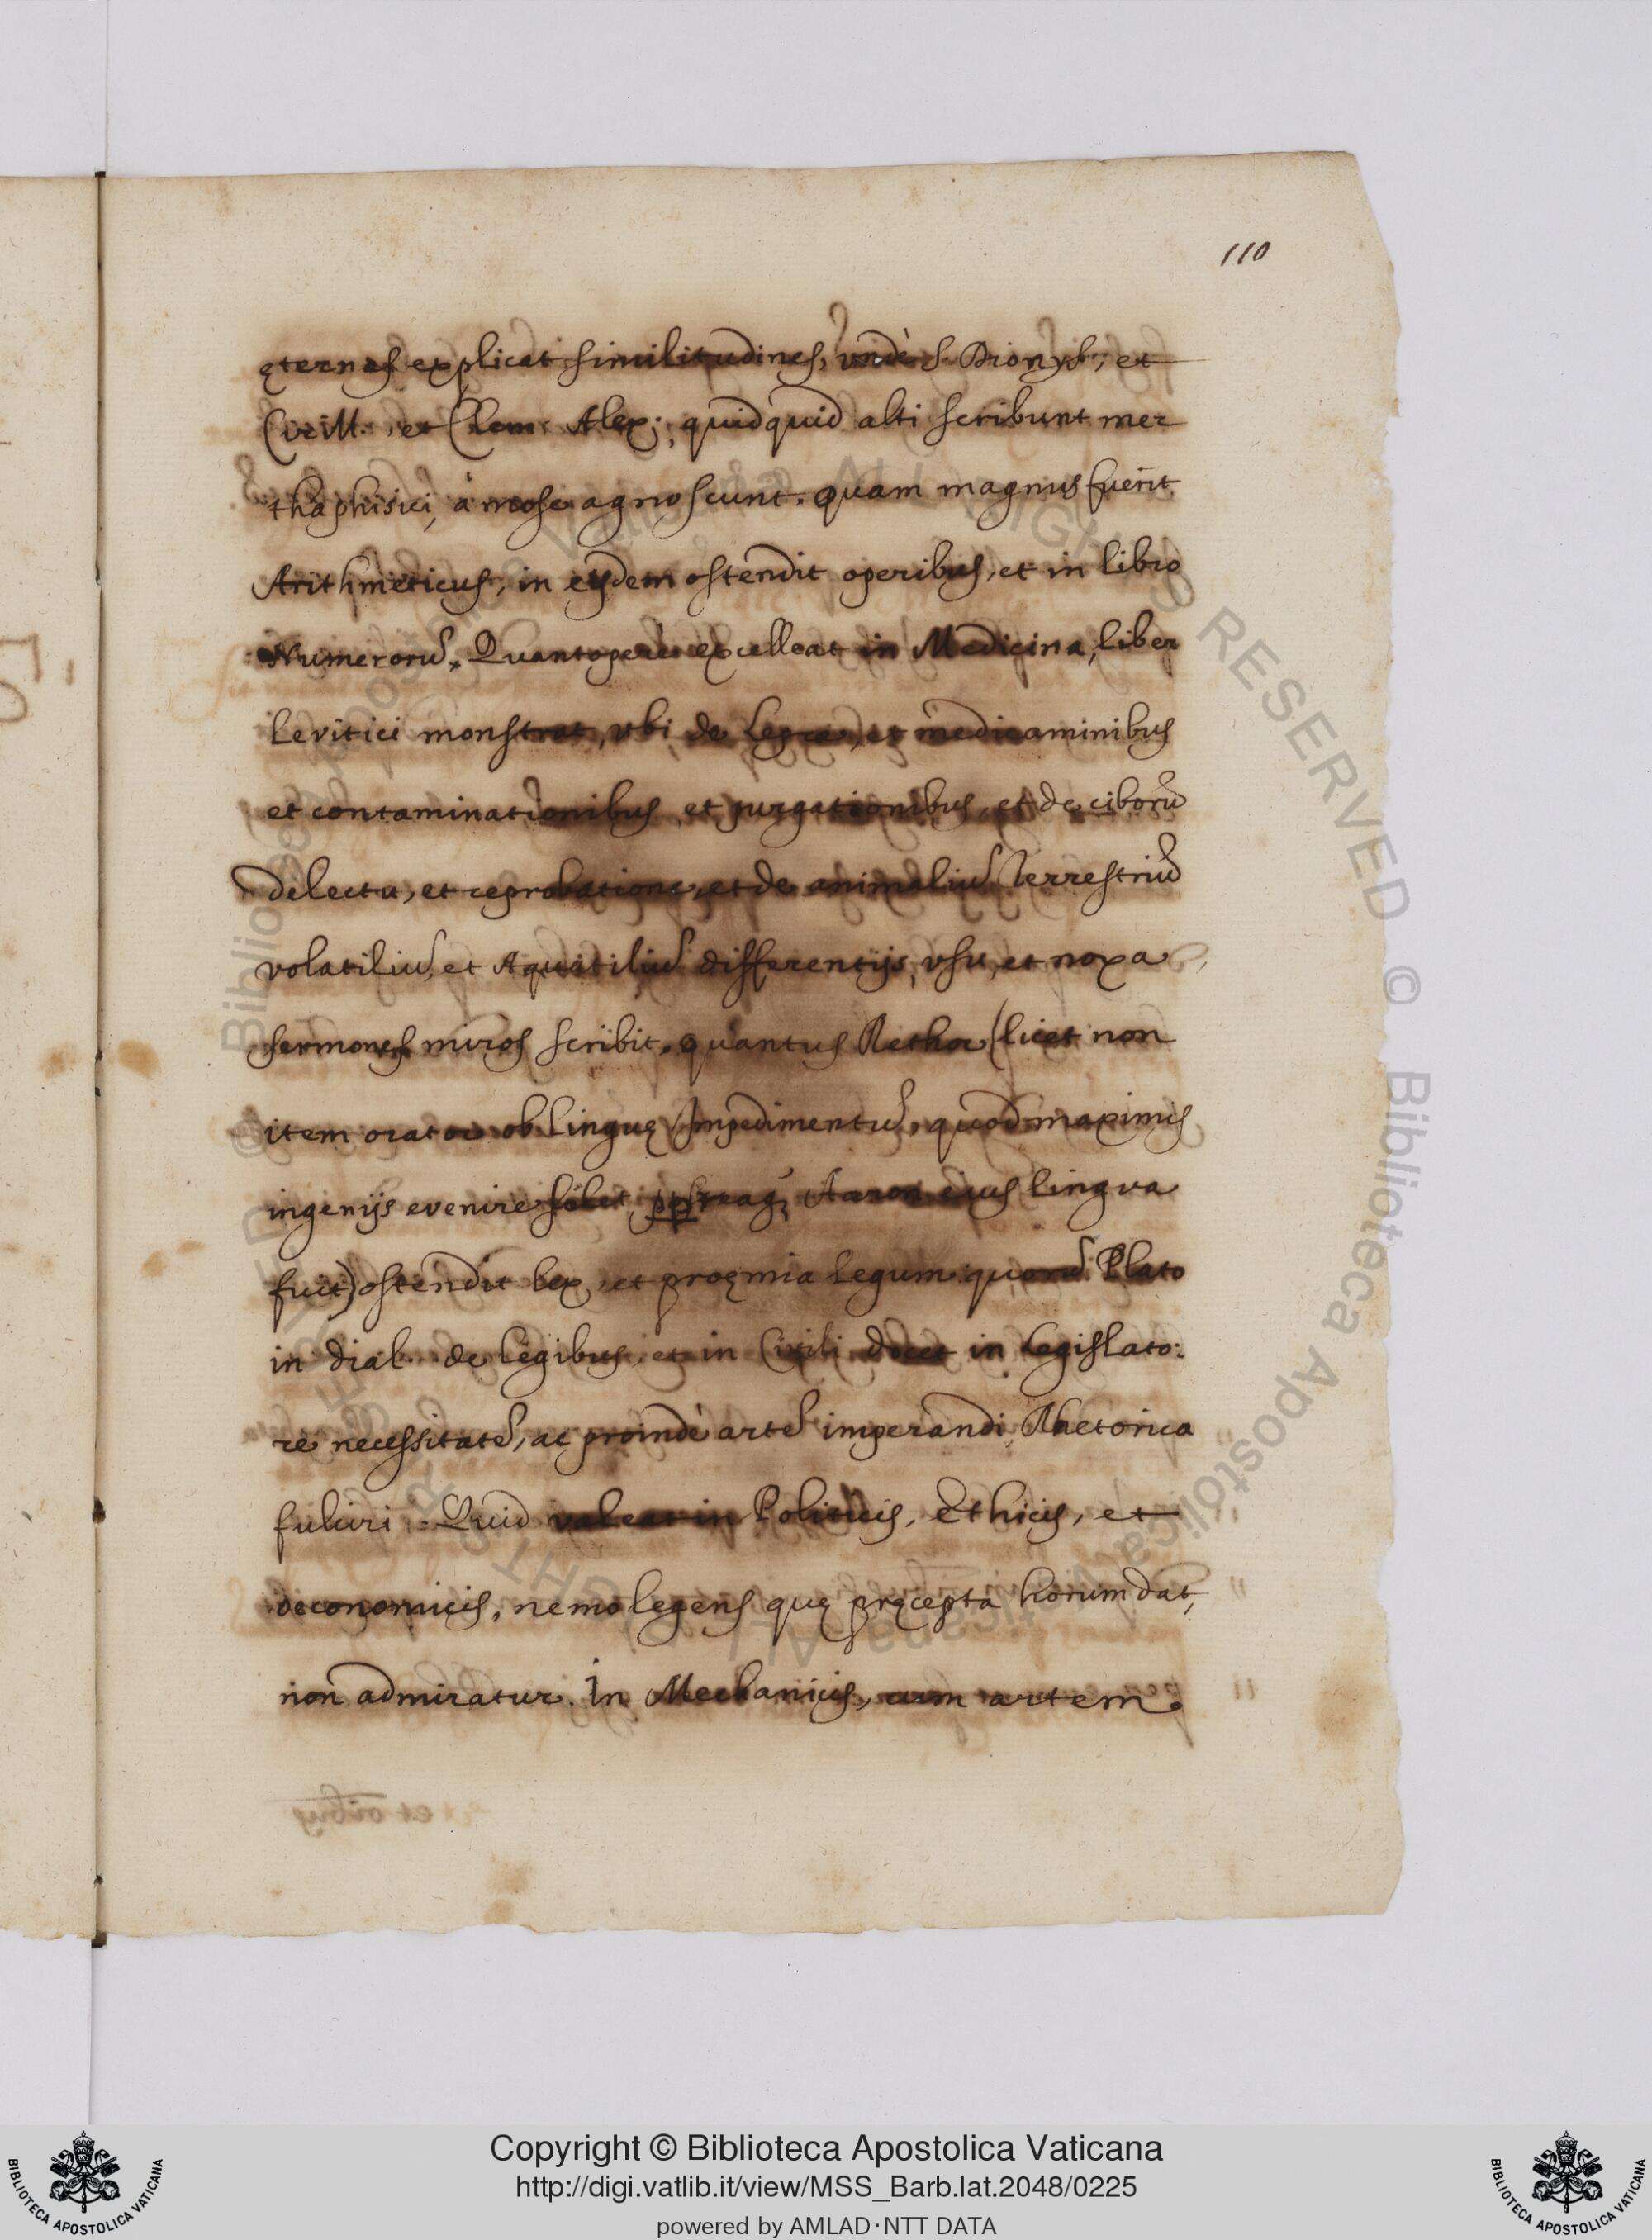 110
ęternas explicat similitudines, undè S. Dionys., et
Cirill. et Clem. Alex., quidquid alti scribunt met
thaphisici, à mose agnoscunt. quam magnus fuerit
Arithmeticus, in eisdem ostendit operibus, et in libro
Numerorũ. Quantoperè excelleat in Medicina, liber
levitici monstrat, ubi de Lepra, et medicaminibus
et contaminationibus et purgationibus, et de ciborũ
delectu, et reprobatione, et de animaliũ Terrestriũ
volatiliũ, et Aquatiliũ differentijs, usu, et noxa
sermones miros scribit. quantus Rethor (licet non
item orator ob linguę Impedimentũ, quod maximis
ingenijs evenire solet, Aaron eius lingua
fuit) ostendit lex, et proęmia legum quorũ Plato
in dial. de legibus, et in Civili docet in legislato:
re necessitatẽ, ac proindè artẽ imperandi Rhetorica
fulciri. Quid valeat in Politicis, Ethicis, et
oeconomicis, nemo legens quę pręcepta horum dat,
non admiratur. In Mechanicis, cum artem
Copyright © Biblioteca Apostolica Vaticana
http://digi.vatlib.it/view/MSS_Barb.lat.2048/0225
powered by AMLAD·NTT DATA
BIBLIOTECA APOSTOLICA VATICANA
BIBLIOTECA APOSTOLICA VATICANA